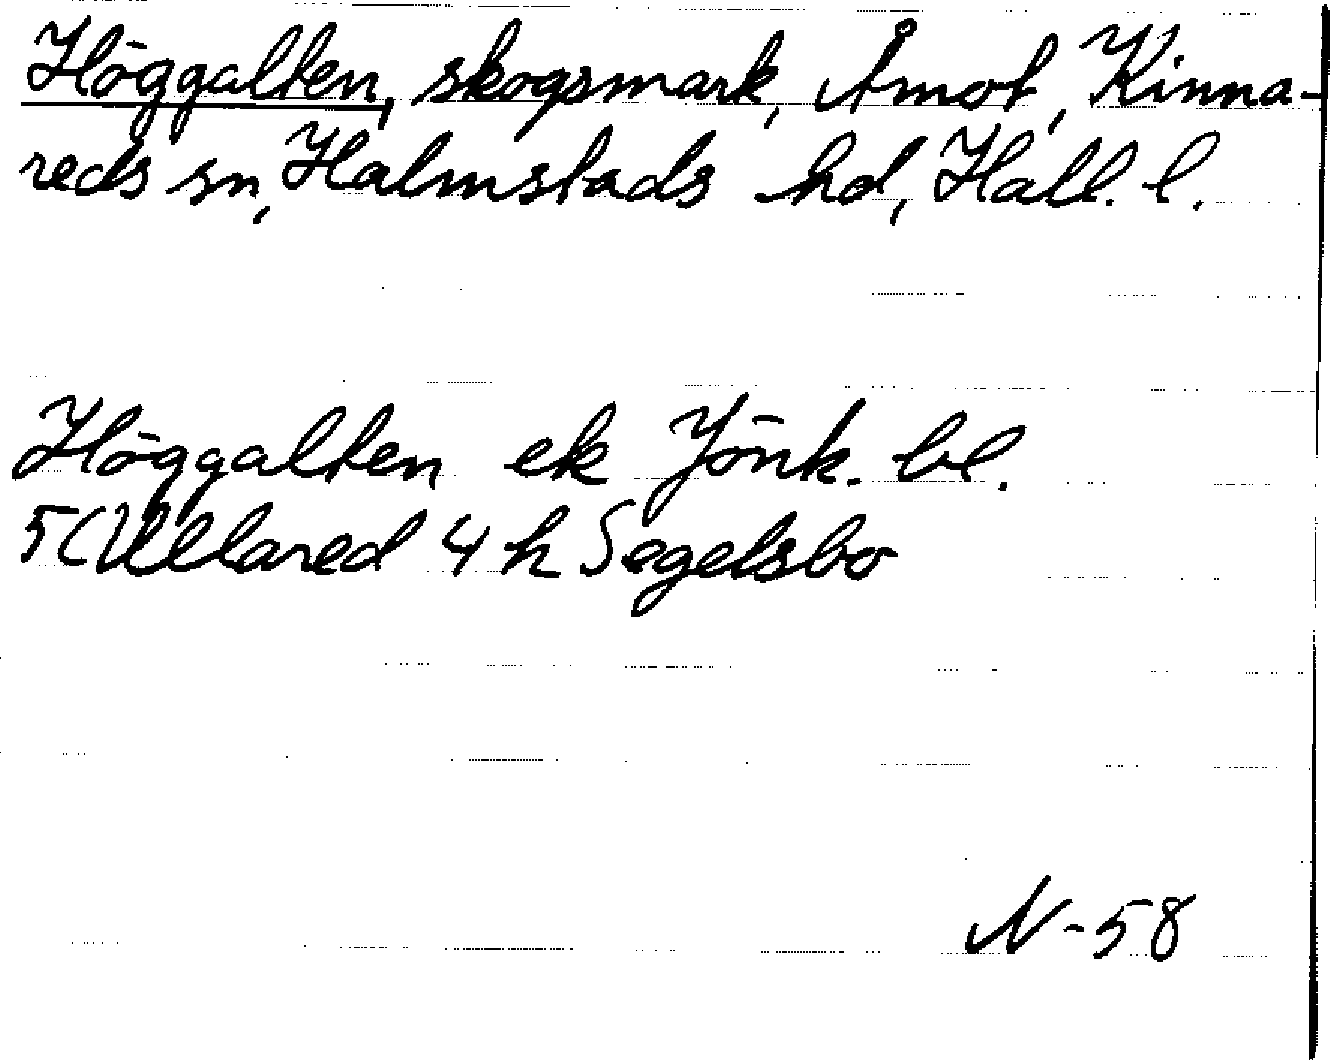 Höggalten, skogsmark, Åmot, Kinna-
reds sn, Halmstads hd, Hall. l.
Höggalten ek Jönk. bl.
5C Ullared 4 h Segelsbo
N-58